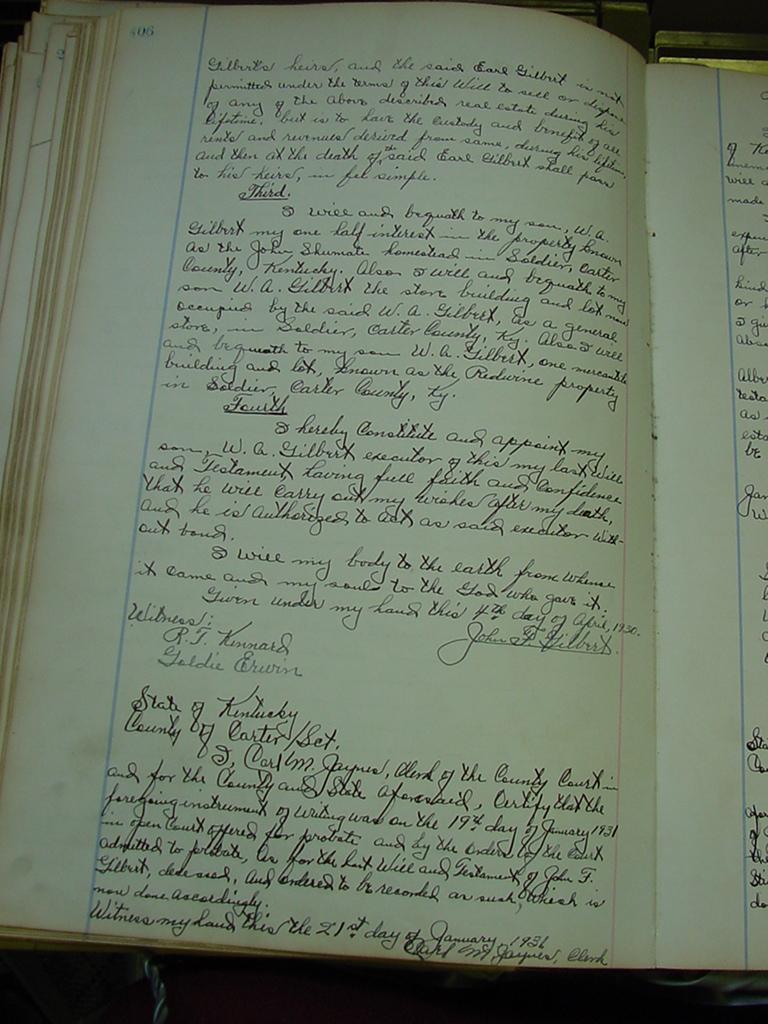 406
Gilbert's heirs, and the said Earl Gilbert is not
permitted under the terms of this Will to sell or dispose
of any of the above described real estate during his
lifetime, but is to have the custody and benefit of all
rents and revenues derived from same, during his lifetime,
and then at the death of the said Earl Gilbert shall pass
to his heirs, in fee simple.
Third.
I will and bequath to my son, W. A.
Gilbert my one half interest in the property known
as the John Shumate homestead in Soldier, Carter
County, Kentucky. Also I will and bequath to my
son W. A. Gilbert the store building and lot now
occupied by the said W. A. Gilbert, as a general
store, in Soldier, Carter County, Ky. Also I will
and bequath to my son W. A. Gilbert, one mercantile
building and lot, known as the Redwine property
in Soldier, Carter County, Ky.
Fourth
I hereby Constitute and appoint my
son, W. A. Gilbert executor of this my last Will
and Testament having full faith and Confidence
that he will carry out my wishes after my death,
and he is authorized to act as said executor with-
out bond.
I will my body to the earth from whence
it came and my soul to the God who gave it.
Given under my hand this 4th day of April, 1930.
Witness: John F. Gilbert.
R. T. Kennard
Goldie Erwin
State of Kentucky
County of Carter / Sct.
I, Carl M. Jaynes, Clerk of the County Court in
and for the County and State aforesaid, Certify that the
foregoing instrument of writing was on the 19th day of January 1931
in open Court offered for probate and by the orders of the Court
admitted to probate, as for the last Will and Testament of John F.
Gilbert, deceased, and ordered to be recorded as such, which is
now done accordingly.
Witness my hand this the 21st day of January, 1931
Carl M. Jaynes, Clerk